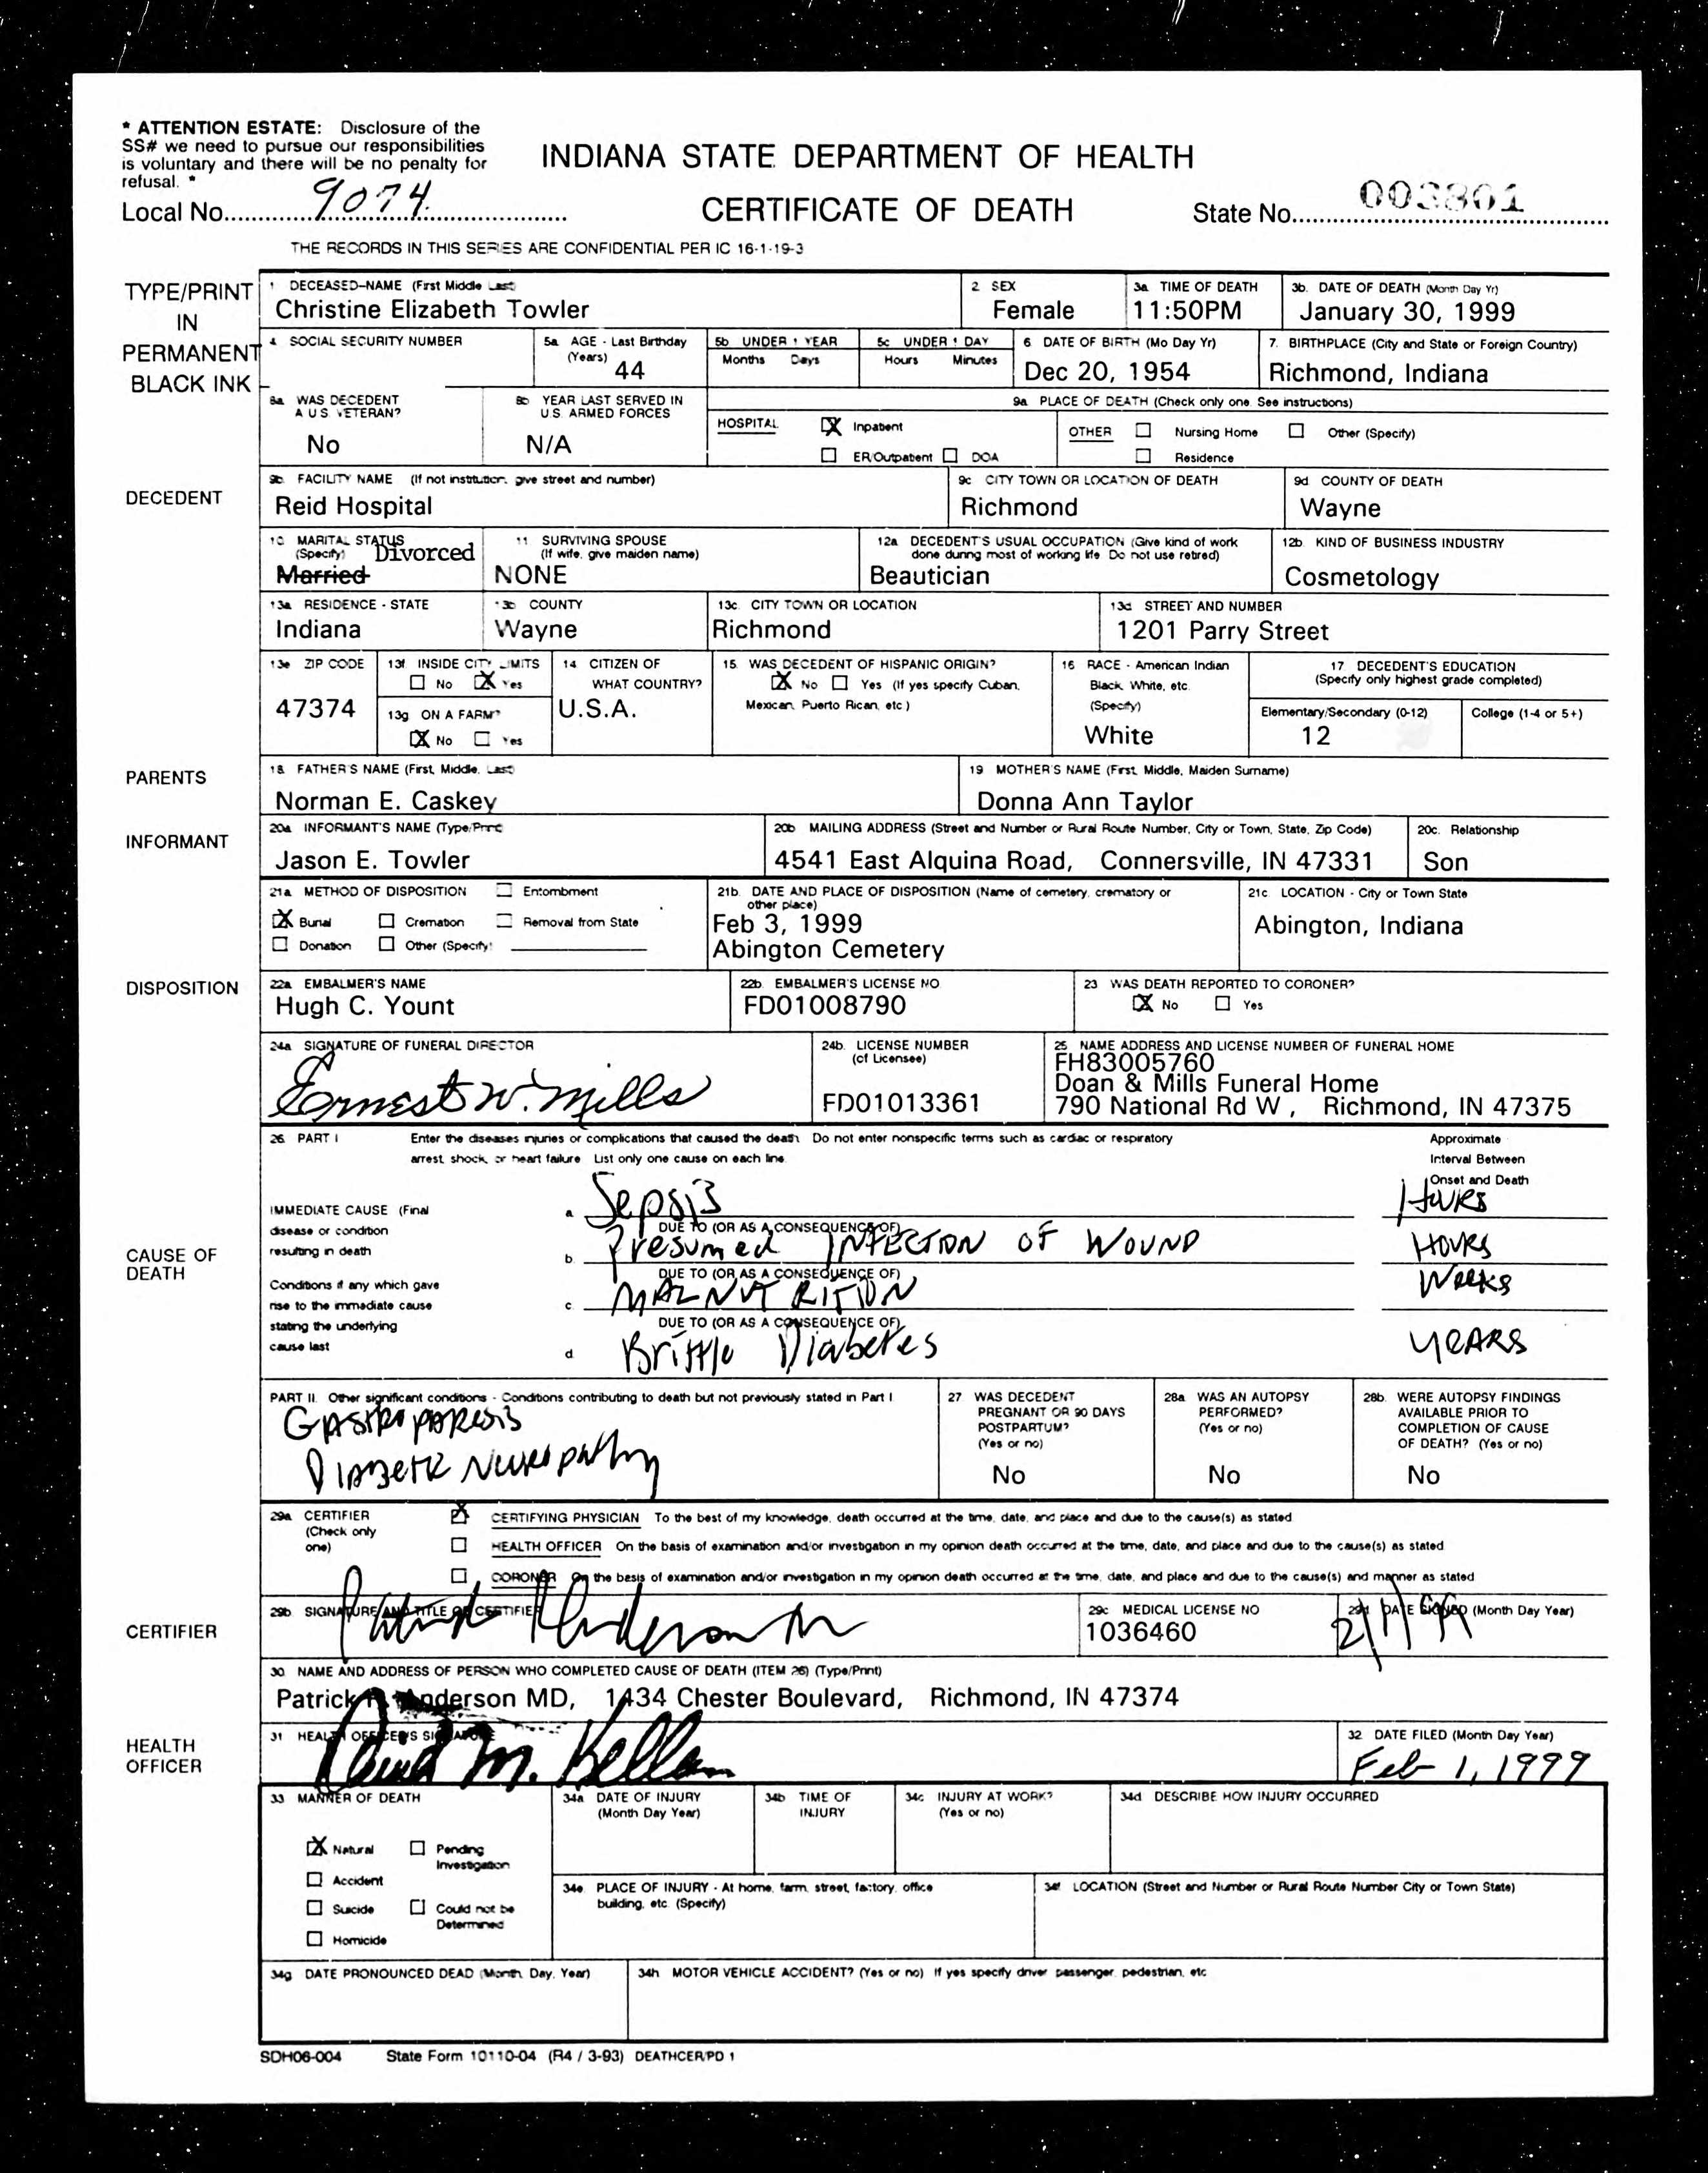 * ATTENTION ESTATE: Disclosure of the
SS# we need to pursue our responsibilities
is voluntary and there will be no penalty for
refusal. *
INDIANA STATE DEPARTMENT OF HEALTH
Local No. 9074.
CERTIFICATE OF DEATH
State No.
THE RECORDS IN THIS SERIES ARE CONFIDENTIAL PER IC 16-1-19-3
TYPE/PRINT
IN
PERMANENT
BLACK INK
1 DECEASED–NAME (First Middle Last)
Christine Elizabeth Towler
2 SEX
Female
3a. TIME OF DEATH
11:50PM
3b. DATE OF DEATH (Month Day Yr)
January 30, 1999
4 SOCIAL SECURITY NUMBER
5a. AGE - Last Birthday
(Years)
44
5b UNDER 1 YEAR
Months Days
5c UNDER 1 DAY
Hours Minutes
6 DATE OF BIRTH (Mo Day Yr)
Dec 20, 1954
7. BIRTHPLACE (City and State or Foreign Country)
Richmond, Indiana
DECEDENT
8a WAS DECEDENT
A U.S. VETERAN?
No
8b YEAR LAST SERVED IN
U.S. ARMED FORCES
N/A
9a. PLACE OF DEATH (Check only one. See instructions)
HOSPITAL X Inpatient
ER/Outpatient DOA
OTHER Nursing Home Other (Specify)
Residence
9b. FACILITY NAME (If not institution, give street and number)
Reid Hospital
9c CITY TOWN OR LOCATION OF DEATH
Richmond
9d COUNTY OF DEATH
Wayne
10 MARITAL STATUS
(Specify) Divorced
Married
11 SURVIVING SPOUSE
(If wife, give maiden name)
NONE
12a. DECEDENT'S USUAL OCCUPATION (Give kind of work
done during most of working life Do not use retired)
Beautician
12b. KIND OF BUSINESS INDUSTRY
Cosmetology
13a. RESIDENCE - STATE
Indiana
13b COUNTY
Wayne
13c. CITY TOWN OR LOCATION
Richmond
13d STREET AND NUMBER
1201 Parry Street
13e ZIP CODE
47374
13f. INSIDE CITY LIMITS
No X Yes
13g ON A FARM?
X No Yes
14 CITIZEN OF
WHAT COUNTRY?
U.S.A.
15. WAS DECEDENT OF HISPANIC ORIGIN?
X No Yes (If yes specify Cuban,
Mexican, Puerto Rican, etc.)
16 RACE - American Indian
Black, White, etc.
(Specify)
White
17. DECEDENT'S EDUCATION
(Specify only highest grade completed)
Elementary/Secondary (0-12)
12
College (1-4 or 5+)
PARENTS
18. FATHER'S NAME (First, Middle, Last)
Norman E. Caskey
19 MOTHER'S NAME (First, Middle, Maiden Surname)
Donna Ann Taylor
INFORMANT
20a INFORMANT'S NAME (Type/Print)
Jason E. Towler
20b MAILING ADDRESS (Street and Number or Rural Route Number, City or Town, State, Zip Code)
4541 East Alquina Road, Connersville, IN 47331
20c. Relationship
Son
DISPOSITION
21a METHOD OF DISPOSITION Entombment
X Burial Cremation Removal from State
Donation Other (Specify)
21b. DATE AND PLACE OF DISPOSITION (Name of cemetery, crematory or
other place)
Feb 3, 1999
Abington Cemetery
21c LOCATION - City or Town State
Abington, Indiana
22a EMBALMER'S NAME
Hugh C. Yount
22b. EMBALMER'S LICENSE NO
FD01008790
23 WAS DEATH REPORTED TO CORONER?
X No Yes
24a SIGNATURE OF FUNERAL DIRECTOR
Ernest W. Mills
24b. LICENSE NUMBER
(of Licensee)
FD01013361
25 NAME ADDRESS AND LICENSE NUMBER OF FUNERAL HOME
FH83005760
Doan & Mills Funeral Home
790 National Rd W , Richmond, IN 47375
CAUSE OF
DEATH
26. PART I Enter the diseases injuries or complications that caused the death Do not enter nonspecific terms such as cardiac or respiratory
arrest, shock, or heart failure List only one cause on each line.
Approximate
Interval Between
Onset and Death
IMMEDIATE CAUSE (Final
disease or condition
resulting in death
Conditions if any which gave
rise to the immediate cause
stating the underlying
cause last
a Sepsis Hours
DUE TO (OR AS A CONSEQUENCE OF)
b. Presumed INFECTION OF WOUND HOURS
DUE TO (OR AS A CONSEQUENCE OF)
c. MALNUTRITION Weeks
DUE TO (OR AS A CONSEQUENCE OF)
d Brittle Diabetes YEARS
PART II. Other significant conditions - Conditions contributing to death but not previously stated in Part I
GASTROPARESIS
DIABETIC Neuropathy
27 WAS DECEDENT
PREGNANT OR 90 DAYS
POSTPARTUM?
(Yes or no)
No
28a. WAS AN AUTOPSY
PERFORMED?
(Yes or no)
No
28b. WERE AUTOPSY FINDINGS
AVAILABLE PRIOR TO
COMPLETION OF CAUSE
OF DEATH? (Yes or no)
No
CERTIFIER
29a CERTIFIER
(Check only
one)
X CERTIFYING PHYSICIAN To the best of my knowledge, death occurred at the time, date, and place and due to the cause(s) as stated
HEALTH OFFICER On the basis of examination and/or investigation in my opinion death occurred at the time, date, and place and due to the cause(s) as stated
CORONER On the basis of examination and/or investigation in my opinion death occurred at the time, date, and place and due to the cause(s) and manner as stated
29b SIGNATURE AND TITLE OF CERTIFIER
29c MEDICAL LICENSE NO
1036460
29d DATE SIGNED (Month Day Year)
2/1/99
30. NAME AND ADDRESS OF PERSON WHO COMPLETED CAUSE OF DEATH (ITEM 26) (Type/Print)
Patrick Anderson MD, 1434 Chester Boulevard, Richmond, IN 47374
HEALTH
OFFICER
31 HEALTH OFFICER'S SIGNATURE
32 DATE FILED (Month Day Year)
Feb 1, 1999
33 MANNER OF DEATH
X Natural Pending
Investigation
Accident
Suicide Could not be
Determined
Homicide
34a DATE OF INJURY
(Month Day Year)
34b TIME OF
INJURY
34c INJURY AT WORK?
(Yes or no)
34d DESCRIBE HOW INJURY OCCURRED
34e PLACE OF INJURY - At home, farm, street, factory, office
building, etc. (Specify)
34f LOCATION (Street and Number or Rural Route Number City or Town State)
34g DATE PRONOUNCED DEAD (Month, Day, Year)
34h MOTOR VEHICLE ACCIDENT? (Yes or no) If yes specify driver passenger, pedestrian, etc
SDH06-004 State Form 10110-04 (R4 / 3-93) DEATHCER/PD 1